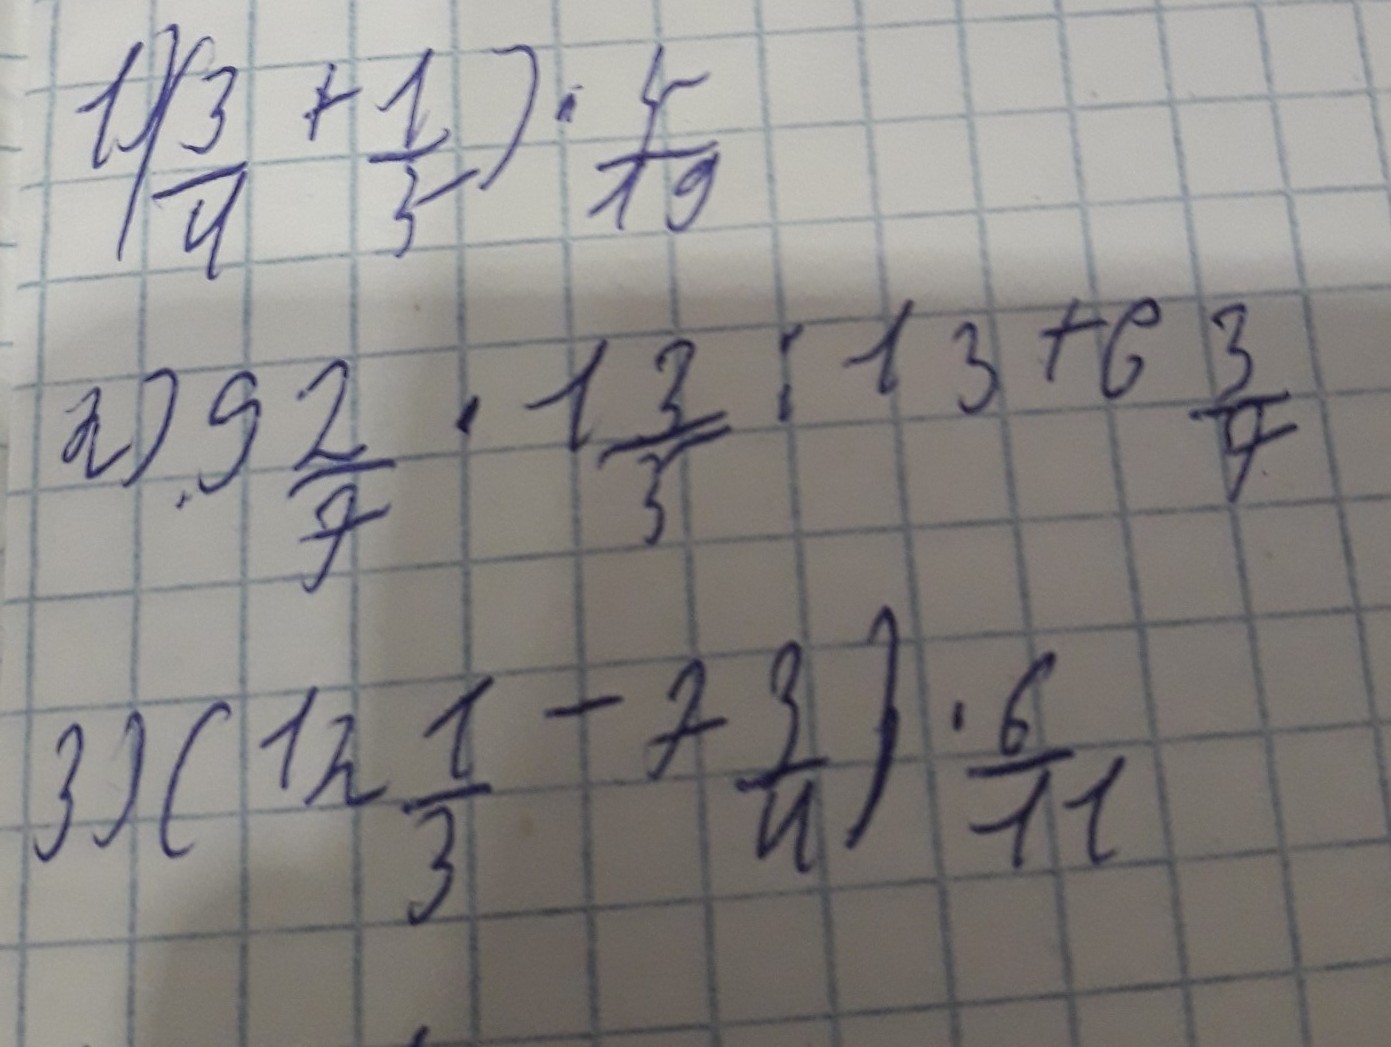 1) (3/4 + 1/5) · 5/19
2) 9 2/7 · 1 2/5 : 13 + 6 3/7
3) (12 1/3 - 7 3/4) · 6/11